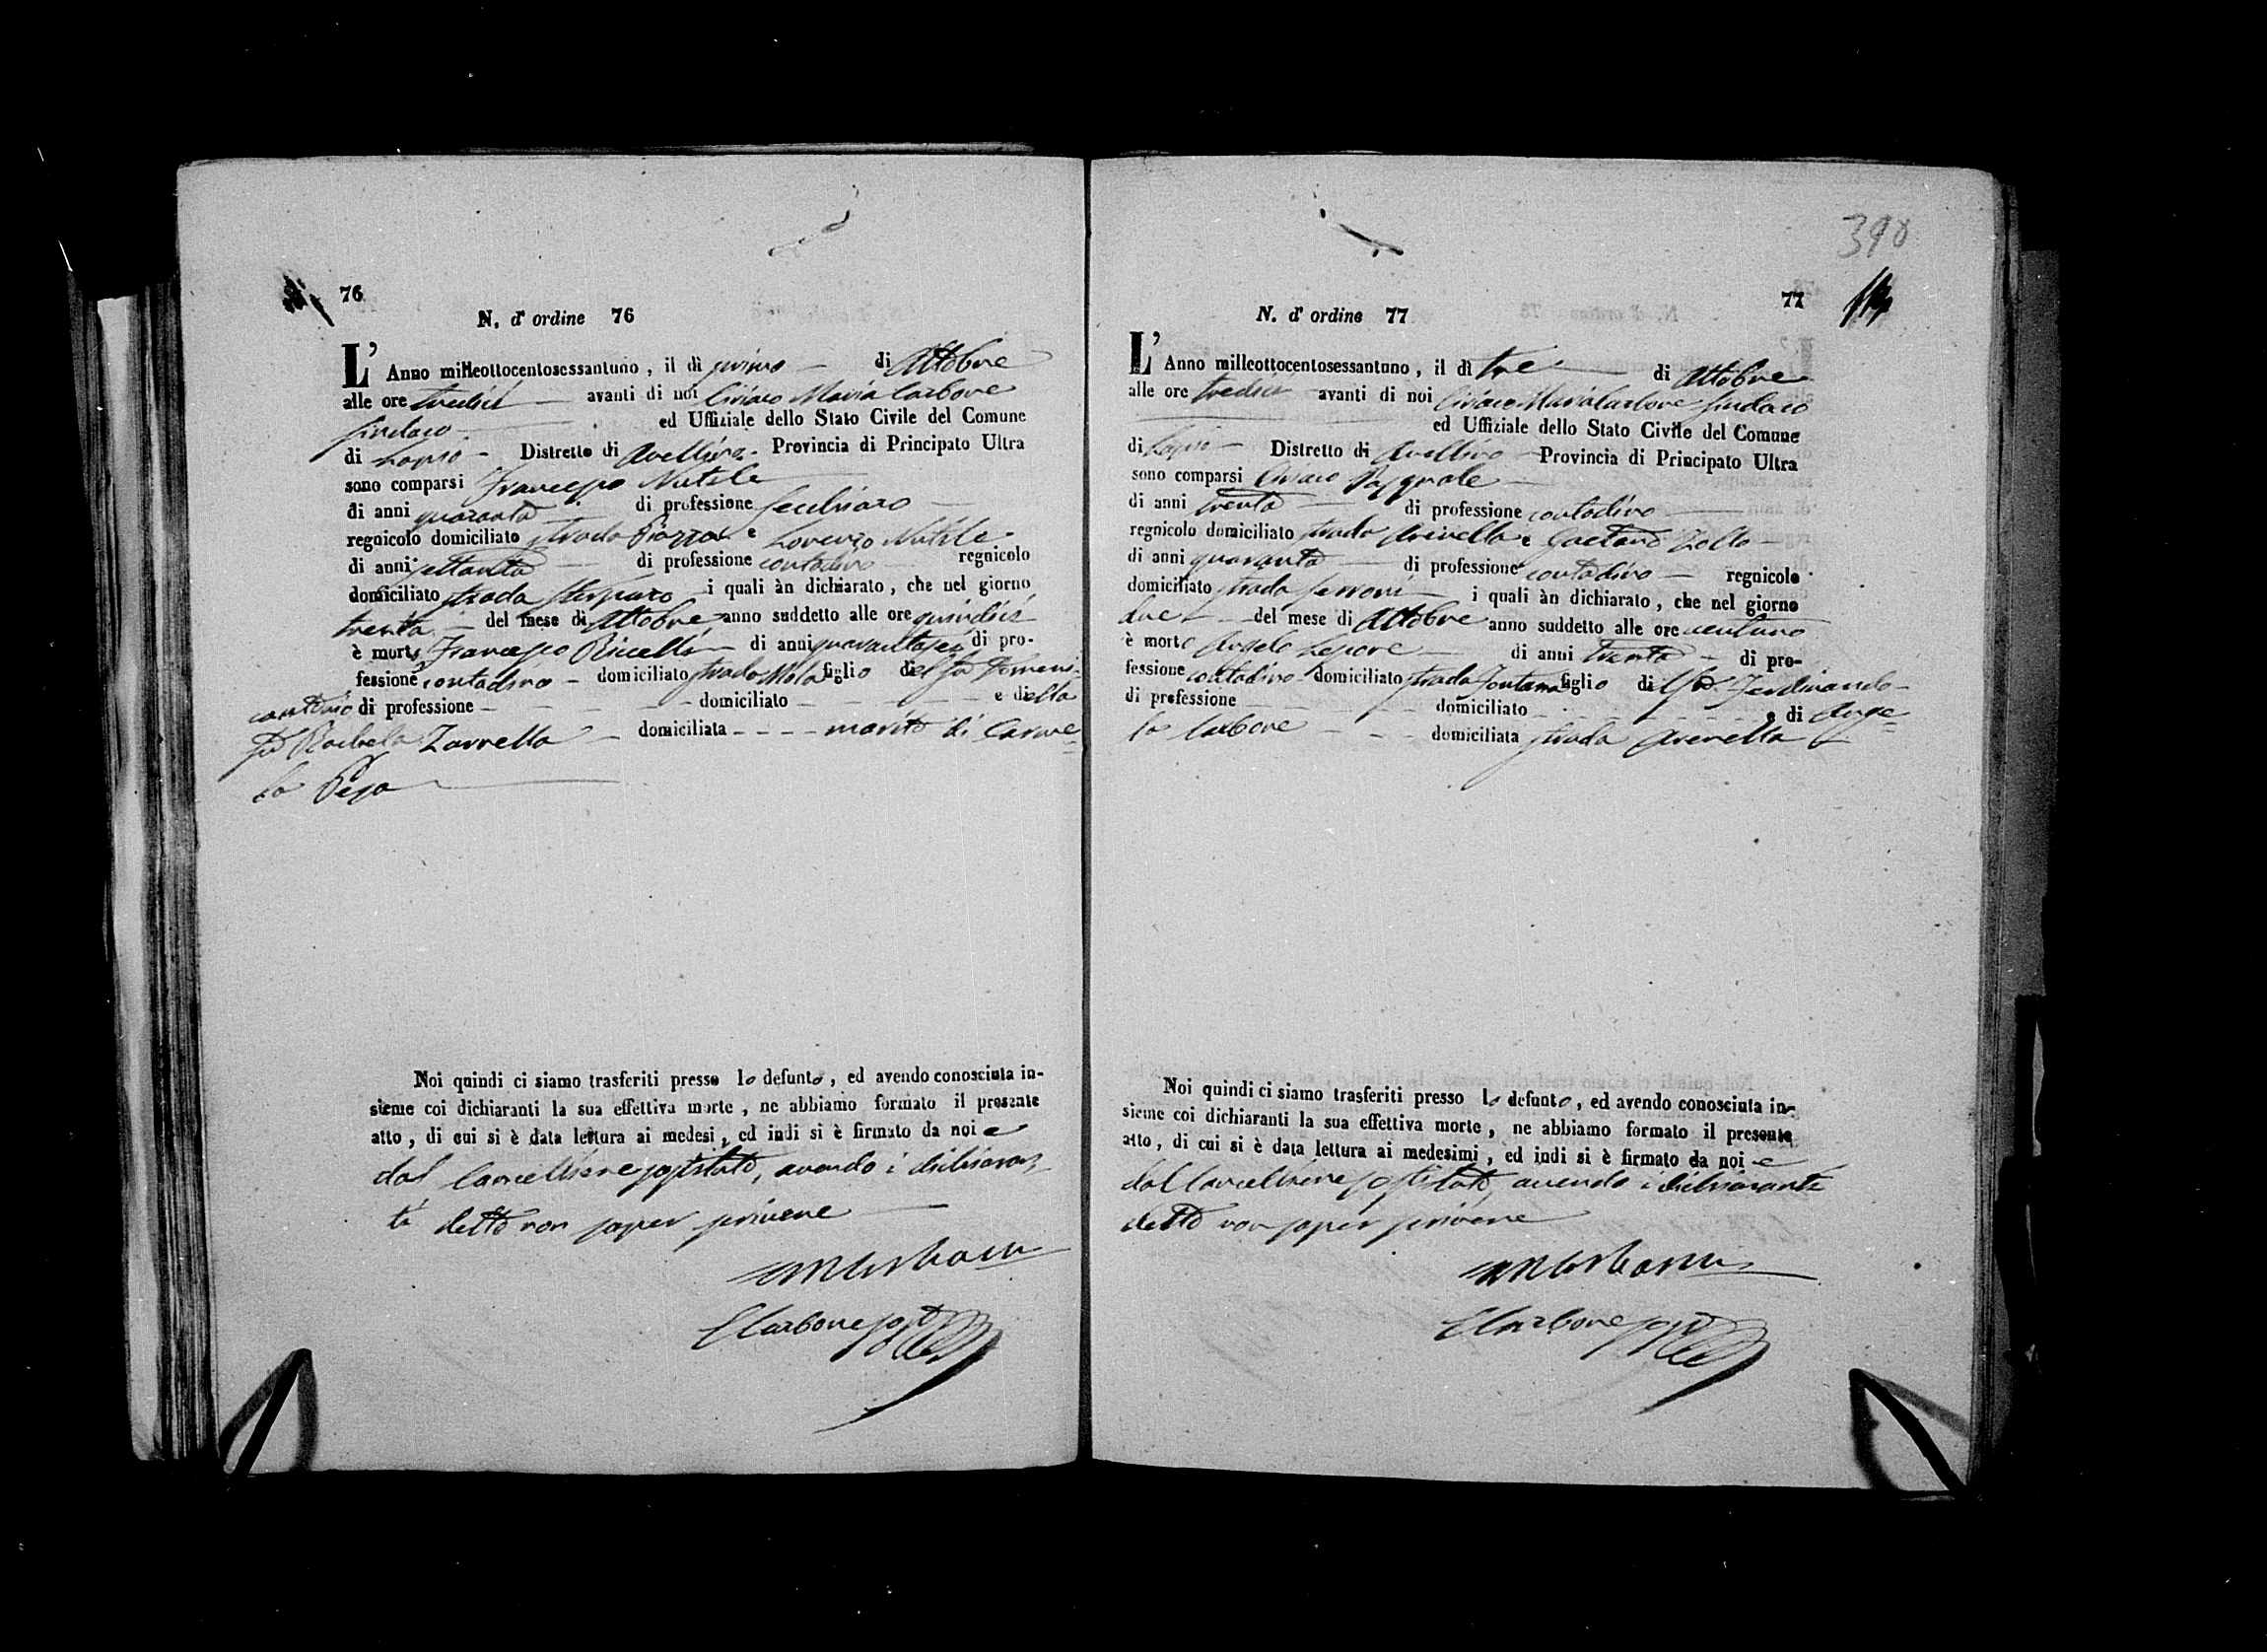 76
N. d' ordine 76
L' Anno milleottocentosessantuno, il dì primo di Ottobre
alle ore tredici avanti di noi Ciriaco Maria Carbone
Sindaco ed Uffiziale dello Stato Civile del Comune
di Lapio Distretto di Avellino Provincia di Principato Ultra
sono comparsi Francesco Nutile
di anni quaranta di professione
regnicolo domiciliato strada Piazza e Lorenzo Nutile
di anni settanta di professione contadino regnicolo
domiciliato strada i quali àn dichiarato, che nel giorno
trenta del mese di Ottobre anno suddetto alle ore quindici
è morto Francesco Riccelli di anni quarantasei di pro-
fessione contadino domiciliato strada Mola figlio del fu Domeni-
cantonio di professione domiciliato e della
fu Rachela Zarrella domiciliata marito di Carme-
la Pepa
Noi quindi ci siamo trasferiti presso lo defunto, ed avendo conosciuta in-
sieme coi dichiaranti la sua effettiva morte, ne abbiamo formato il presente
atto, di cui si è data lettura ai medesi, ed indi si è firmato da noi e
dal Cancelliere sostituto, avendo i dichiaran-
ti detto non saper scrivere
CMCarbone
C Carbone sostto
390
77
N. d' ordine 77
L' Anno milleottocentosessantuno, il dì tre di Ottobre
alle ore tredici avanti di noi Ciriaco Maria Carbone Sindaco
ed Uffiziale dello Stato Civile del Comune
di Lapio Distretto di Avellino Provincia di Principato Ultra
sono comparsi Ciriaco Pasquale
di anni trenta di professione contadino
regnicolo domiciliato strada Arenella e Gaetano Zollo
di anni quaranta di professione contadino regnicolo
domiciliato strada Serroni i quali àn dichiarato, che nel giorno
due del mese di Ottobre anno suddetto alle ore ventuno
è morto Angelo Lepore di anni trenta di pro-
fessione contadino domiciliato strada Fontana figlio di fu Ferdinando
di professione domiciliato e di Ange-
la Carbone domiciliata strada Arenella
Noi quindi ci siamo trasferiti presso lo defunto, ed avendo conosciuta in-
sieme coi dichiaranti la sua effettiva morte, ne abbiamo formato il presente
atto, di cui si è data lettura ai medesimi, ed indi si è firmato da noi e
dal Cancelliere sostituto, avendo i dichiaranti
detto non saper scrivere
CMCarbone
C Carbone sostto